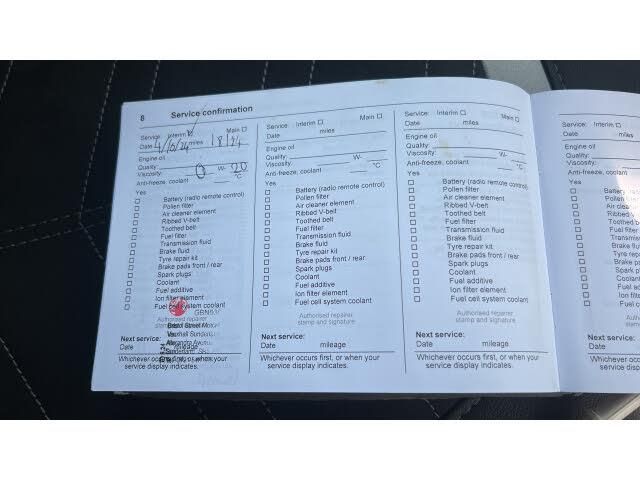 8 Service confirmation
Service: Interim Main
Date 4/10/24 miles
Engine oil
Quality:
Viscosity: 0 W- 20
Anti-freeze, coolant °C
Yes
Battery (radio remote control)
Pollen filter
Air cleaner element
Ribbed V-belt
Toothed belt
Fuel filter
Transmission fluid
Brake fluid
Tyre repair kit
Brake pads front / rear
Spark plugs
Coolant
Fuel additive
Ion filter element
Fuel cell system coolant
Authorised repairer
Bristol Street Motors
Vauxhall Sunderland
Next service:
Date mileage
Whichever occurs first, or when your
service display indicates.
Service: Interim Main
Date miles
Engine oil
Quality: W-
Viscosity:
Anti-freeze, coolant °C
Yes
Battery (radio remote control)
Pollen filter
Air cleaner element
Ribbed V-belt
Toothed belt
Fuel filter
Transmission fluid
Brake fluid
Tyre repair kit
Brake pads front / rear
Spark plugs
Coolant
Fuel additive
Ion filter element
Fuel cell system coolant
Authorised repairer
stamp and signature
Next service:
Date mileage
Whichever occurs first, or when your
service display indicates.
Service: Interim Main
Date miles
Engine oil
Quality: W-
Viscosity:
Anti-freeze, coolant °C
Yes
Battery (radio remote control)
Pollen filter
Air cleaner element
Ribbed V-belt
Toothed belt
Fuel filter
Transmission fluid
Brake fluid
Tyre repair kit
Brake pads front / rear
Spark plugs
Coolant
Fuel additive
Ion filter element
Fuel cell system coolant
Authorised repairer
stamp and signature
Next service:
Date mileage
Whichever occurs first, or when your
service display indicates.
Service: Interim
Date
Engine oil
Quality:
Viscosity:
Anti-freeze, coolant
Yes
Next service:
Date
Whichever occurs
service display